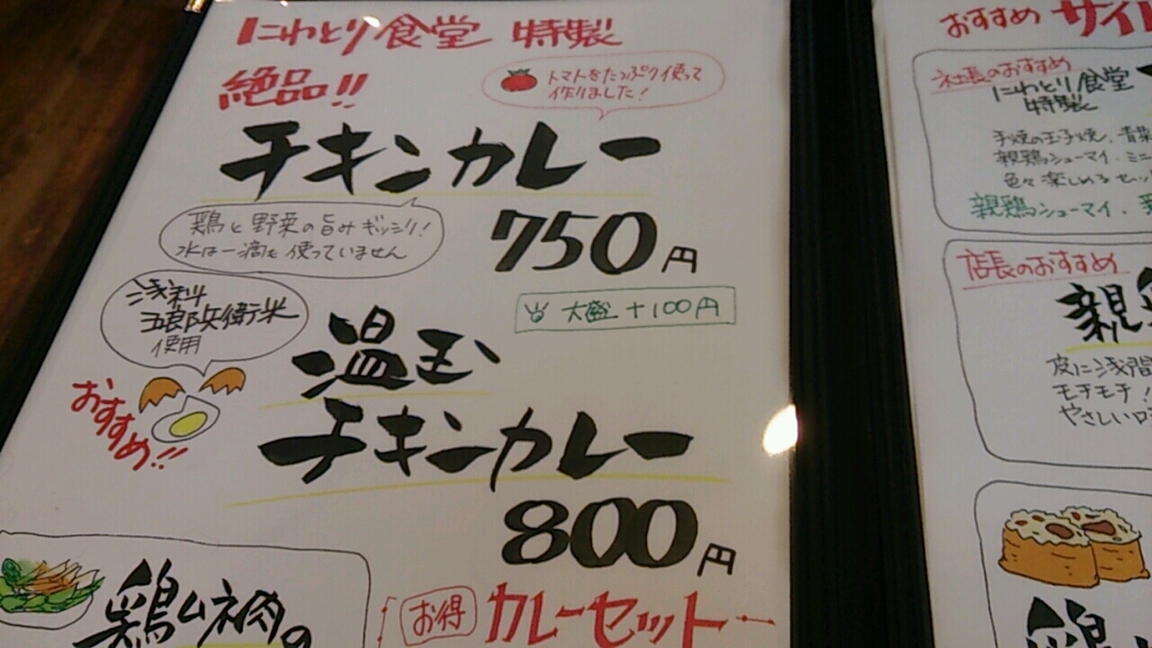 にわとり食堂 特製
絶品!!
トマトをたっぷり使って
作りました!
チキンカレー
750円
鶏と野菜の旨みギッシリ!
水は一滴も使っていません
大盛+100円
浅科
五郎兵衛米
使用
温玉
チキンカレー
800円
おすすめ!!
鶏ムネ肉の
お得 カレーセット
おすすめ サイ
社長のおすすめ
にわとり食堂
特製
手焼の玉子焼、青菜
親鶏シューマイ、ミニ
色々楽しめるセッ
親鶏シューマイ、
店長のおすすめ
親
皮に浅間
モチモチ!
やさしい口
鶏